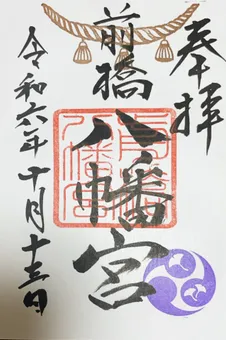 奉拝
前橋
八幡宮
令和六年十月十三日